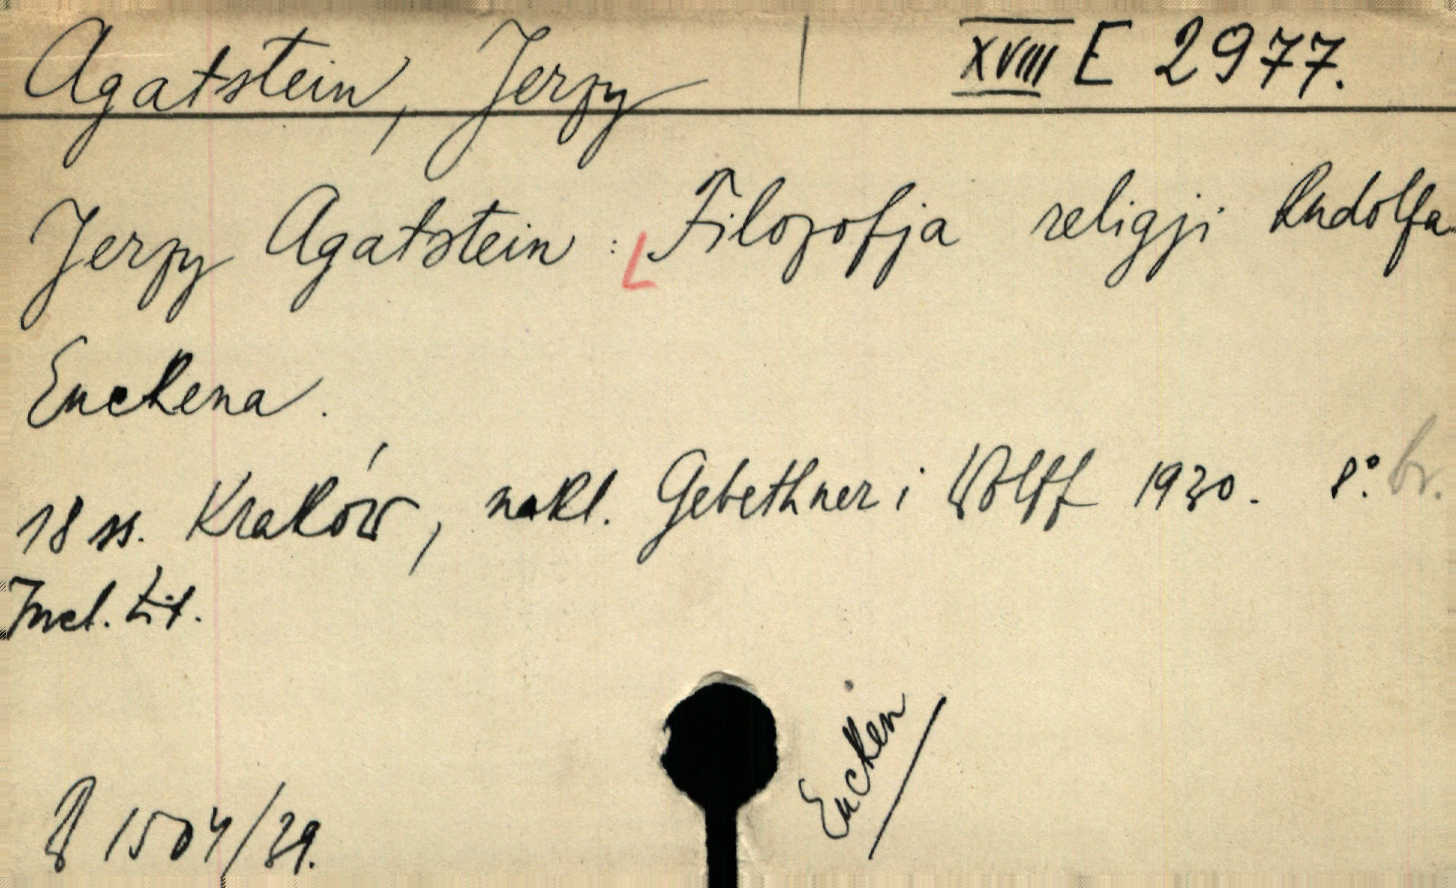 Agatstein, Jerzy XVIII E 2977.
Jerzy Agatstein : Filozofja religji Rudolfa
Euckena.
18 ss. Kraków, nakl. Gebethner i Wolff 1930. 8° br.
Incl. Lit.
Eucken
1504/39.